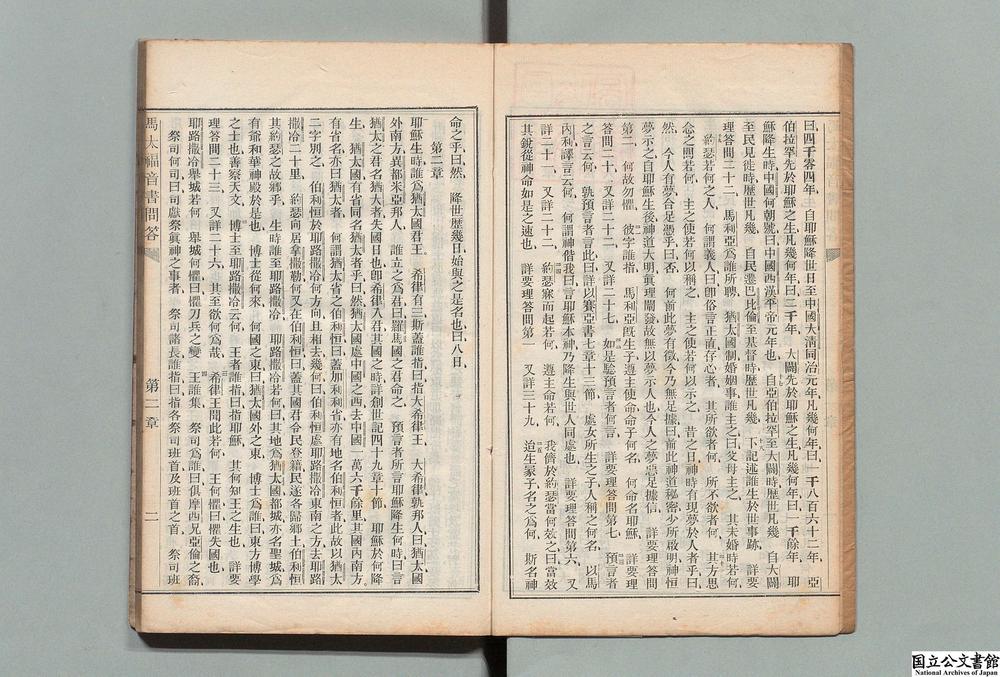 曰四千零四年、自耶穌降世日至中國大淸同治元年凡幾何年曰一千八百六十二年、亞
伯拉罕先於耶穌之生凡幾何年曰二千年、大闢先於耶穌之生凡幾何年曰一千餘年、耶
穌降生時中國何朝號曰中國西漢平帝元年也、自亞伯拉罕至大闢時歷世凡幾、自大闢
至民見徙時歷世凡幾、自民遷巴比倫至基督時歷世凡幾、下記述誰生於世事跡、詳要
理答問二十二、馬利亞爲誰所聘、猶太國制婚姻事誰主之曰父母主之、其未婚時若何、
約瑟若何之人、何謂義人曰卽俗言正直存心者、其所欲者何、所不欲者何、其方思
念之間若何、主之使若何以稱之、主之使若何以示之、昔之日神時有現夢於人者乎曰
然、今人有夢合足憑乎曰否、何前此夢有徵今乃無足據曰前此神道秘密少所啟明神恒
夢示之自耶穌生後神道大明眞理闡發故無以夢示人也今人之夢惡足據信、詳要理答問
第二、何故勿懼、彼字誰指、馬利亞旣生子遵主使命命子何名、何命名耶穌、詳要理
答問二十一、又詳二十二、又詳二十七、如是驗預言者何言、詳要理答問第七、預言者
之言云何、孰預言者言此曰詳以賽亞書七章十三節、處女所生之子人稱之何名、以馬
內利譯言云何、何謂神偕我曰言耶穌本神乃降生與世人同處也、詳要理答問第六、又
詳二十一、又詳二十二、約瑟寐而起若何、遵主命若何、我儕於約瑟當何效之曰當效
其銳從神命如是之速也、詳要理答問第一、又詳三十九、迨生冡子名之爲何、斯名神
命之乎曰然、降世歷幾日始與之是名也曰八日、
第二章
耶穌生時誰爲猶太國君王、希律有三斯蓋誰指曰指大希律王、大希律孰邦人曰猶太國
外南方異都米亞邦人、誰立之爲君曰羅馬國之君命之、預言者所言耶穌降生何時曰言
猶太之君名猶大者失國日也卽希律入君其國之時詳創世記四十九章十節、耶穌於何降
生、猶太國有省同名猶太者乎曰然猶太國處中國之西去中國一萬六千餘里其國內南方
有省名亦曰猶太者、何謂猶太省之伯利恒曰蓋加利利省亦有地名伯利恒者此故以猶太
二字別之、伯利恒於耶路撒冷何方向且相去幾何曰伯利恒處耶路撒冷東南之方去耶路
撒冷二十里、約瑟向居拿撒勒何又在伯利恒曰蓋其國君令民登籍民遂各歸鄕土伯利恒
其約瑟之故鄕乎、生時誰至耶路撒冷、耶路撒冷若何曰其地爲猶太國都城亦名聖城爲
有爺和華神殿於是也、博士從何來、何國之東曰猶太國外之東、博士爲誰曰東方博學
之士也善察天文、博士至耶路撒冷云何、王者誰指曰指耶穌、其何知王之生也、詳要
理答問二十三、又詳二十六、其至欲何爲哉、希律王聞此若何、王何懼曰懼失國也
耶路撒冷舉城若何、舉城何懼曰懼刀兵之變、王誰集、祭司爲誰曰俱摩西兄亞倫之裔、
祭司何司曰司獻祭眞神之事者、祭司諸長誰指曰指各祭司班首及班首之首、祭司班
馬太福音書問答
第二章
二
国立公文書館
National Archives of Japan